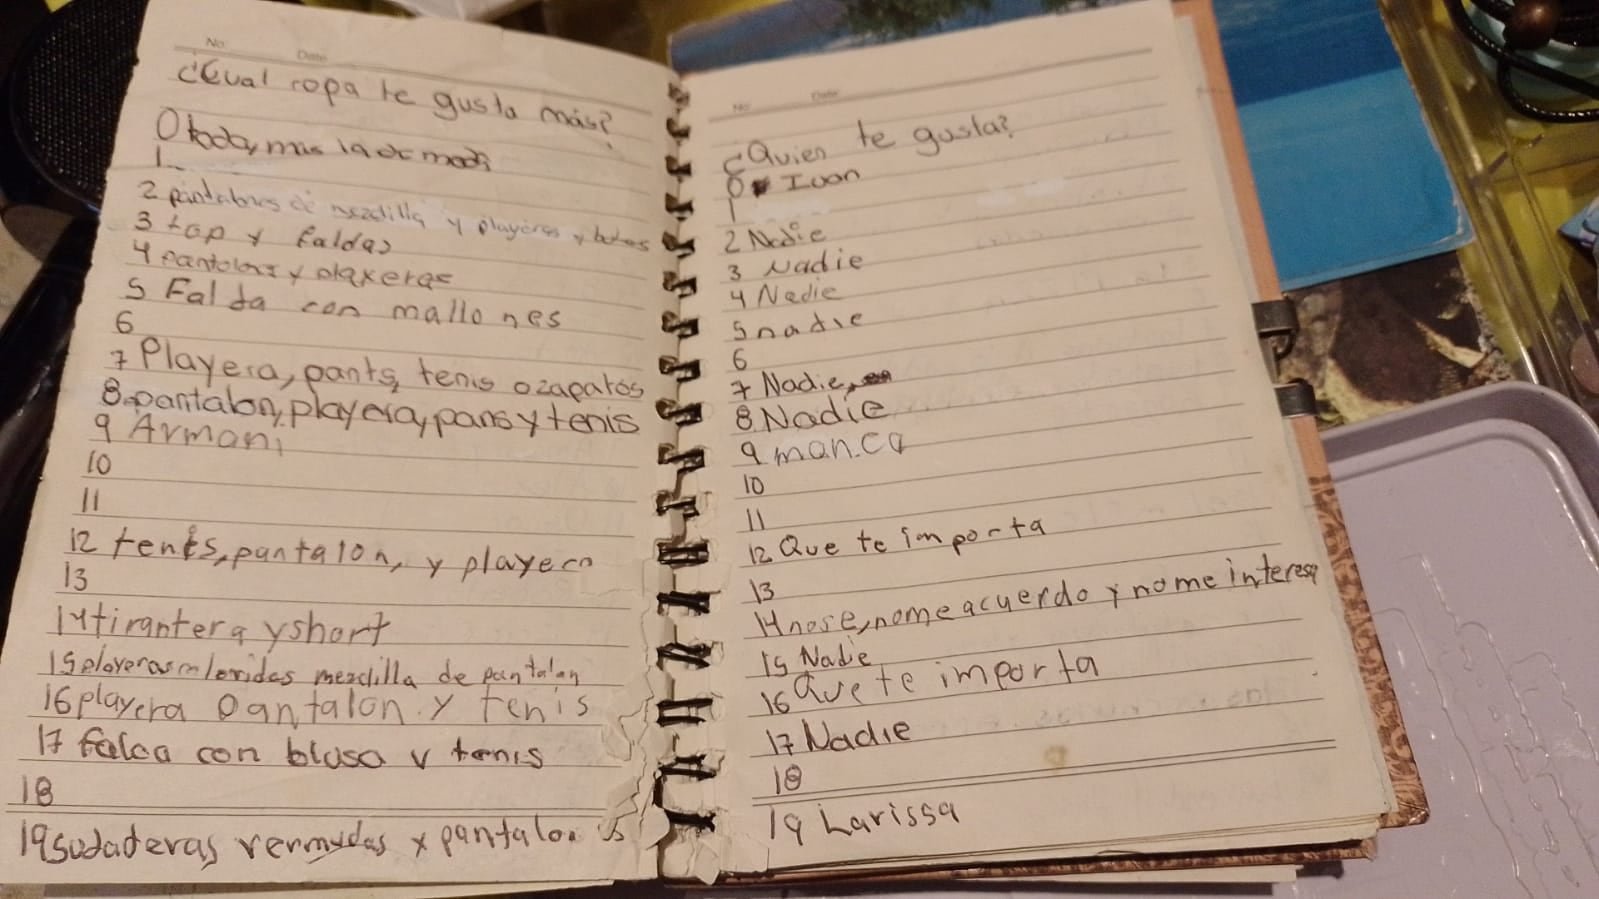 No. Date
¿Cual ropa te gusta más?
0 toda, mas la de moda
1
2 pantalones de mezclilla y playeras y botas
3 top y faldas
4 pantalones y playeras
5 Falda con mallones
6
7 Playera, pants, tenis o zapatos
8 pantalon, playera, pans y tenis
9 Armani
10
11
12 tenis, pantalon, y playera
13
14 tirantera y short
15 mezclilla de pantalon
16 playera pantalon y tenis
17 falda con blusa y tenis
18
19 sudaderas vermudas y pantalones
No. Date
¿Quien te gusta?
0 Ivan
1
2 Nadie
3 Nadie
4 Nadie
5 nadie
6
7 Nadie,
8 Nadie
9 man.ca
10
11
12 Que te importa
13
14 nose, nome acuerdo y nome interesa
15 Nadie
16 Que te importa
17 Nadie
18
19 Larissa